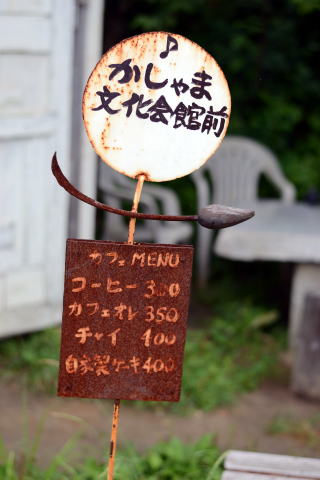 ♪
かしゃま
文化会館前
カフェ MENU
コーヒー 300
カフェオレ 350
チャイ 400
自家製ケーキ 400